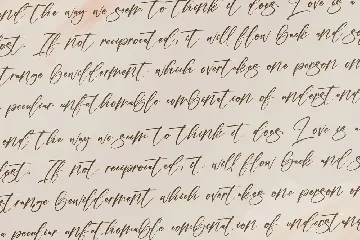 and the way we seem to think it does. Love is a
lost. If not reciprocated, it will flow back and so
strange bewilderment which overtakes one person on
a peculiar unfathomable combination of understand
and the way we seem to think it does. Love is
lost. If not reciprocated, it will flow back and
strange bewilderment which overtakes one person on
a peculiar unfathomable combination of understan